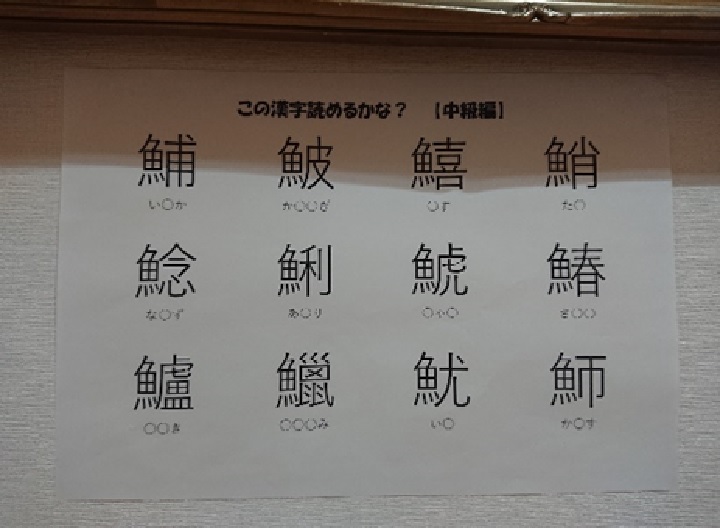 この漢字読めるかな？ 【中級編】
鯆 鮍 鱚 鮹
い○か か○○ぎ ○す た○
鯰 鯏 鯱 鰆
な○ず あ○り ○ゃ○ さ○○
鱸 鱲 魷 鰤
○○き ○○○み い○ か○す